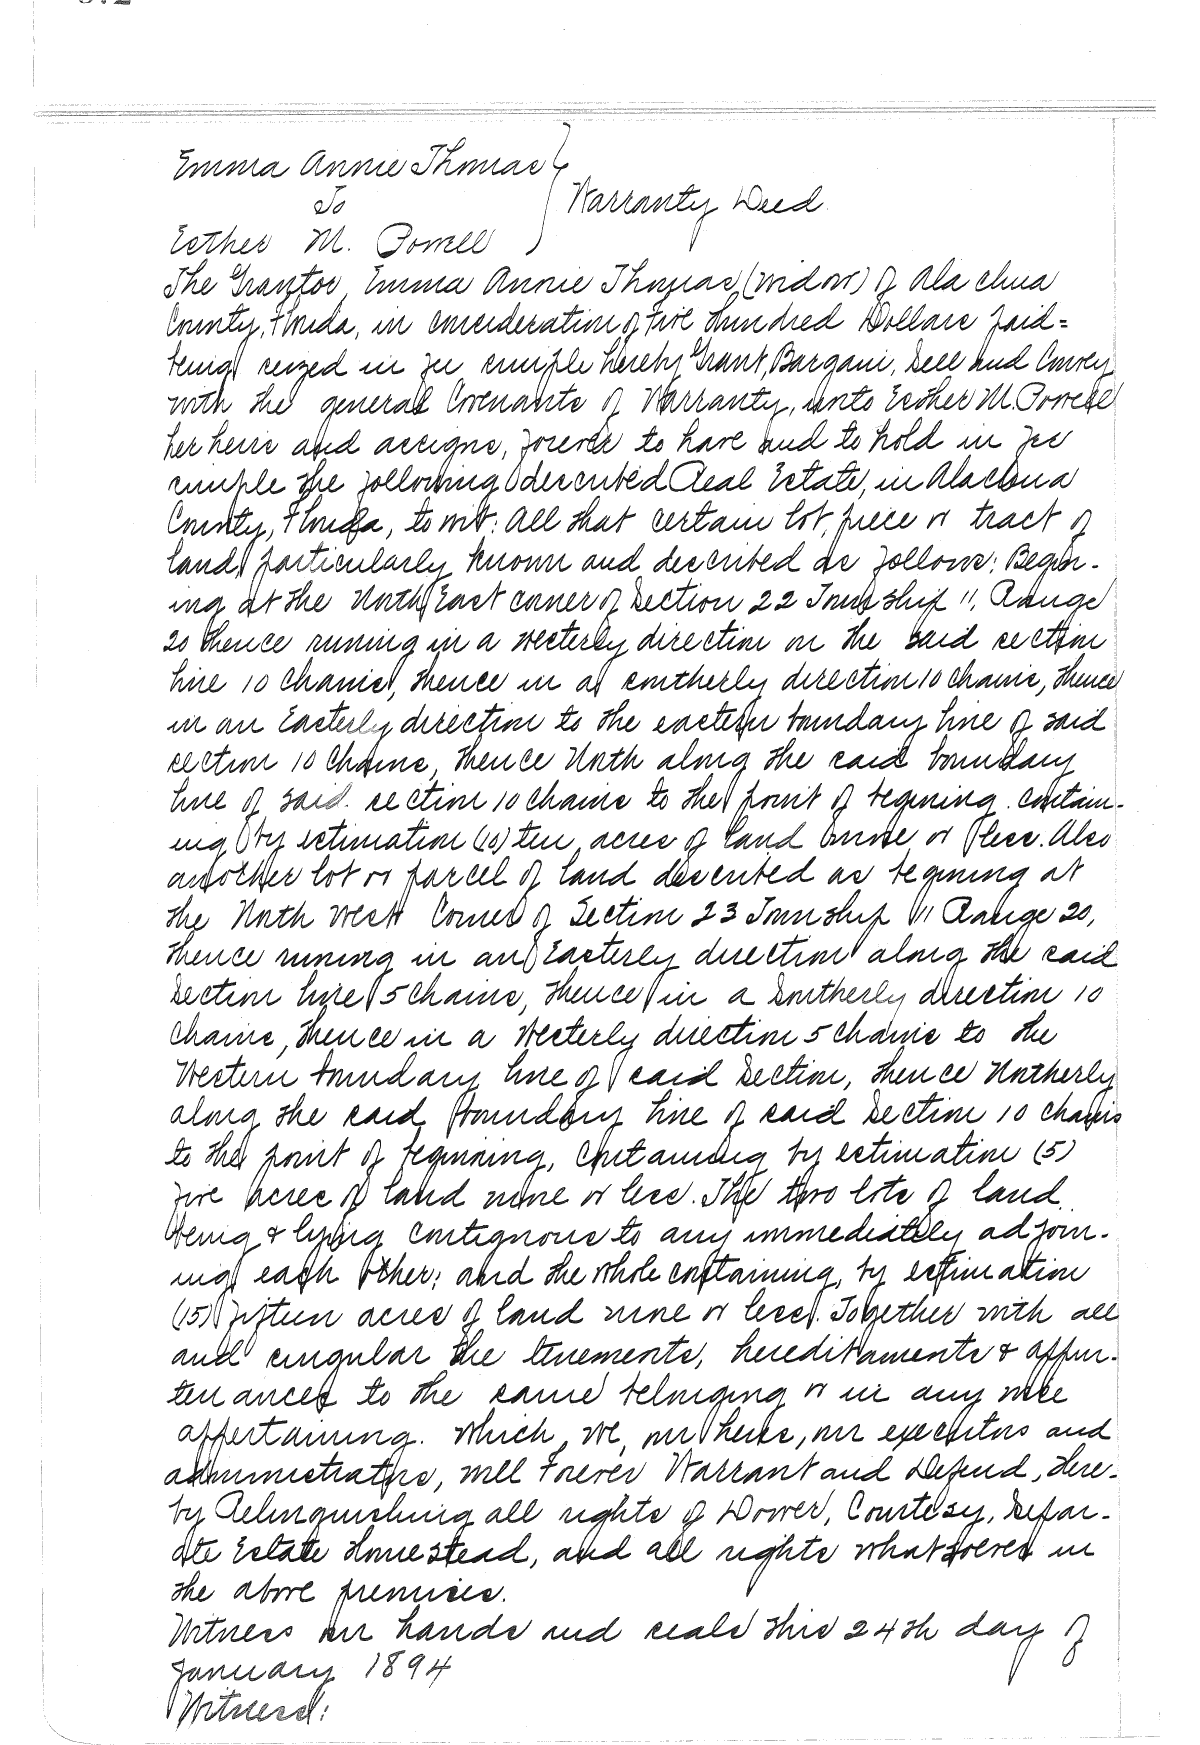 Emma Annie Thomas
To
Warranty Deed.
Esther M. Powell
The Grantor, Emma Annie Thomas (widow) of Alachua
County, Florida, in consideration of Five Hundred Dollars paid=
being seized in fee simple hereby Grant, Bargain, Sell and Convey
with the general Covenants of Warranty, unto Esther M. Powell
her heirs and assigns, forever to have and to hold in fee
simple the following described Real Estate, in Alachua
County, Florida, to wit: All that certain lot, piece or tract of
land particularly known and described as follows: Begin-
ing at the North East corner of Section 22 Township 11, Range
20 thence runing in a westerly direction on the said section
line 10 chains, thence in a southerly direction 10 chains, thence
in an Easterly direction to the eastern boundary line of said
section 10 chains, thence North along the said boundary
line of said section 10 chains to the point of begining. Contain-
ing by estimation (10) ten acres of land more or less. Also
another lot or parcel of land described as begining at
the North West Corner of Section 23 Township 11 Range 20,
thence runing in an Easterly direction along the said
Section line 5 chains, thence in a Southerly direction 10
chains, thence in a Westerly direction 5 chains to the
Western boundary line of said Section, thence Northerly
along the said boundary line of said Section 10 chains
to the point of begining, Containing by estimation (5)
five acres of land more or less. The two lots of land
being & lying contiguous to any immediately adjoin-
ing each other; and the whole containing, by estimation
(15) fifteen acres of land more or less. Together with all
and singular the tenements, hereditaments & appur-
tenances to the same belonging or in any wise
appertaining. Which, we, our heirs, our executors and
administrators, will forever Warrant and Defend, here-
by Relinquishing all rights of Dower, Courtesy, Separ-
ate Estate Homestead, and all rights whatsoever in
the above premises.
Witness our hands and seals this 24th day of
January 1894
Witness: